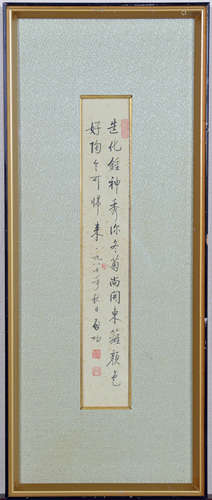 造化鍾神秀深冬菊尚開東籬顏色
好陶令可歸來 一九八 年秋日 啟功